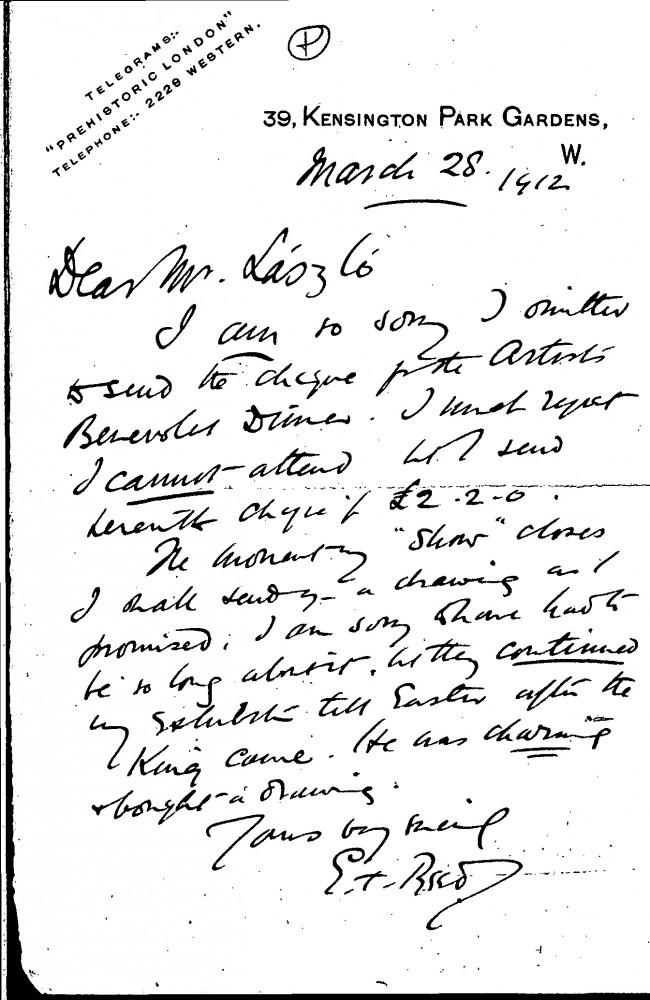 TELEGRAMS:-
"PREHISTORIC LONDON"
TELEPHONE:- 2229 WESTERN.
39, KENSINGTON PARK GARDENS,
W.
March 28. 1912
Dear Mr. László
I am so sorry I omitted
to send the cheque for the Artists
Benevolent Dinner. I must repeat
I cannot attend but I send
herewith cheque of £2-2-0.
The moment my "Show" closes
I shall send you a drawing as I
promised. I am sorry to have had to
be so long about it, but they continued
my Exhibition till Easter after the
King came. He was charming
& bought a drawing.
Yours very sincerely
E.T. Reed